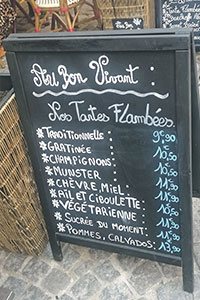 Au Bon Vivant :
Nos Tartes Flambées
* TRADITIONNELLE : 9€,90
* GRATINÉE : 10,50
* CHAMPIGNONS : 10,50
* MUNSTER : 11,50
* CHÈVRE, MIEL : 11,50
* AIL ET CIBOULETTE : 10,50
* VÉGÉTARIENNE : 11,50
* SUCRÉE DU MOMENT : 10,50
* POMMES, CALVADOS : 13,50